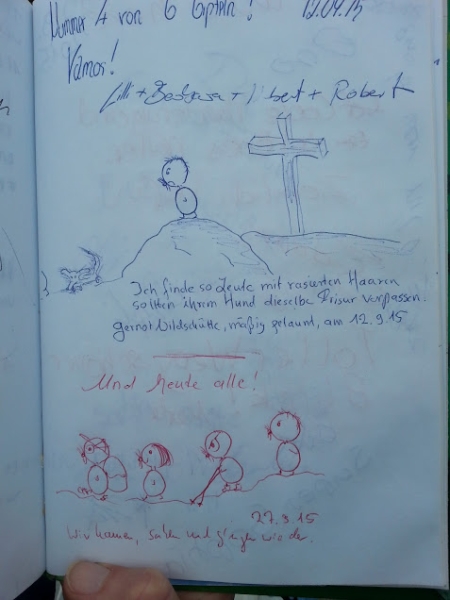 Nummer 4 von 6 Captain! 12.09.15
Vamos!
Lilli + + + Robert
Ich finde so Leute mit rasierten Haaren
sollten ihrem Hund dieselbe Frisur verpassen.
gernot Wildschütte, mäßig gelaunt, am 12.9.15
Und heute alle!
27.9.15
Wir kamen, sahen und gingen wieder.